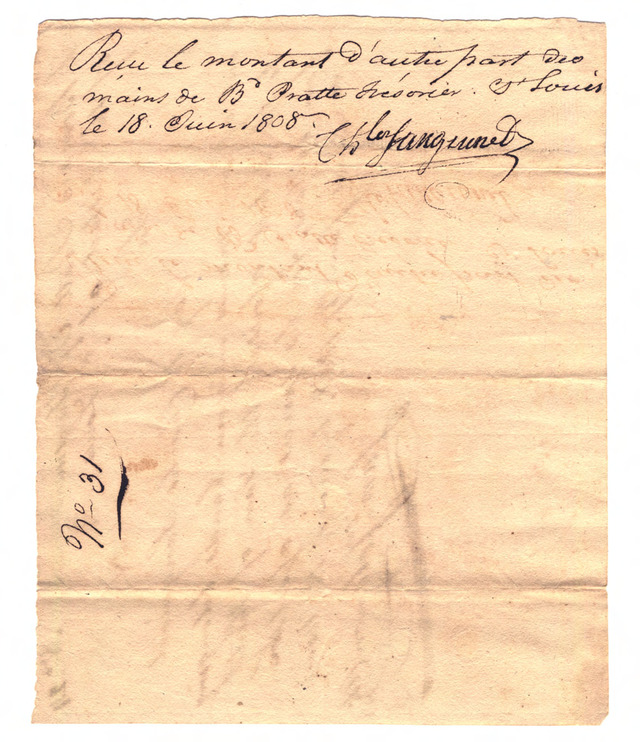 Recu le montant d'autre part des
mains de Bd Pratte trésorier. St Louis
le 18. Juin 1808.
Chles Sanguinet
No 31